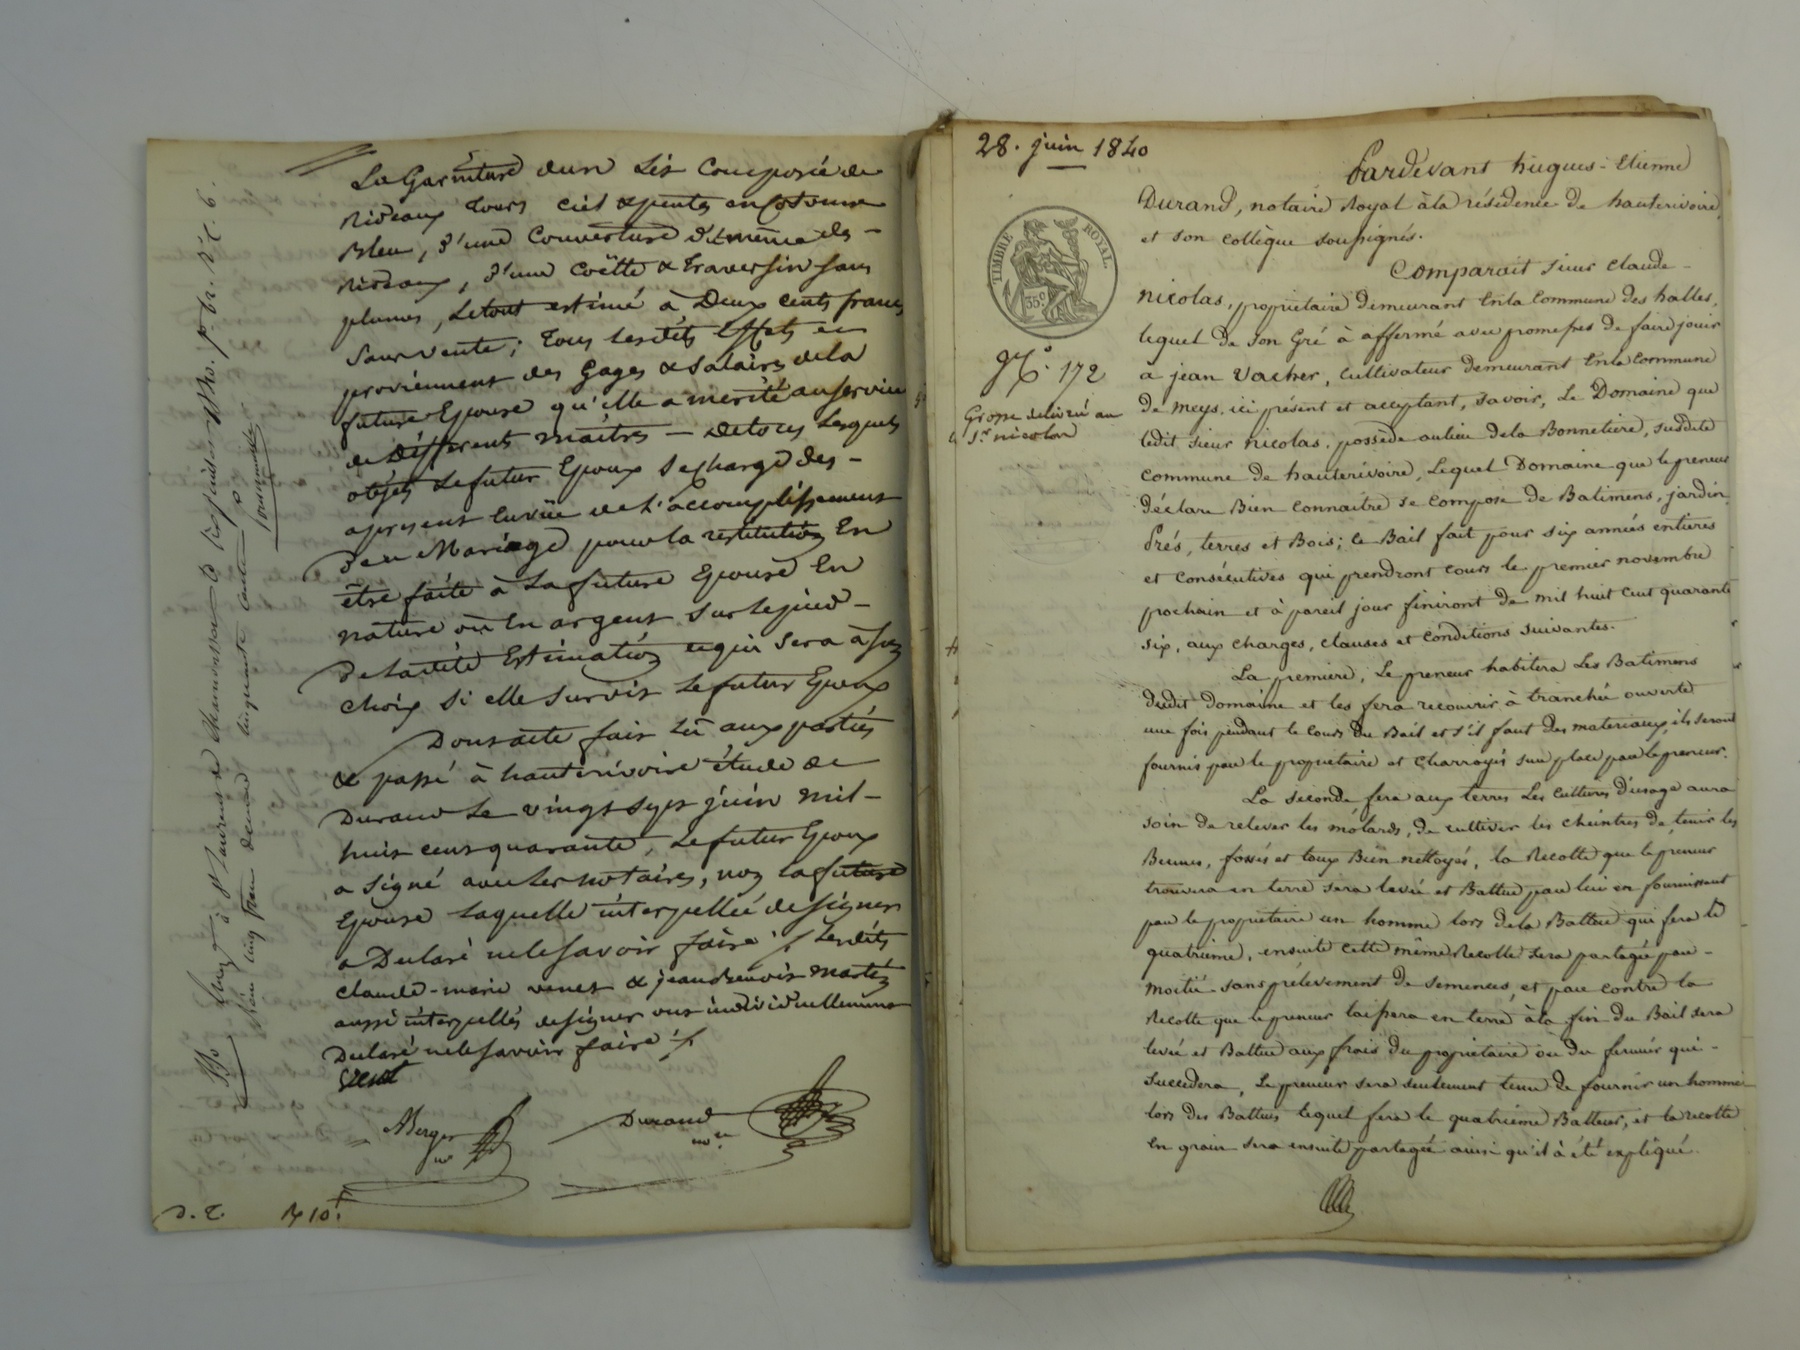 La Garniture dun Lit Composée de
Rideaux tours ciel & pentes en Cotonne
Bleu, d'une Couverture du même des -
rideaux, d'une Coëtte & traversin sans
plumes, Le tout estimé à Deux cents francs
Sans vente; tous lesdits Effets en
proviennent des Gages & Salaires de la
future Epouse qu'elle a mérité au service
de Différents maîtres — De tous Lesquels
objets Le futur Epoux se charge des -
apresent En vüe de l'accomplissement
du Mariage pour la restitution En
être faite à La future Epouse En
nature ou En argent Sur le pied -
De Ladite Estimation ce qui sera à son
choix Si elle survit Le futur Epoux
Dont acte fait Lû aux parties
& passé à hauterivoire étude de
Durand Le vingt sept juin mil -
huit cent quarante, Le futur Epoux
a Signé avec Les notaires, non La future
Epouse Laquelle interpellée de signer
a Déclaré ne le Savoir faire ; Lesdits
Claude-marie venet & jean Benoit
aussi interpellés de signer ont individuellement
Déclaré ne le savoir faire
Venet
Berger
nre
Durand
nore
D. T. R 10f
28. juin 1840
TIMBRE ROYAL.
35c
No. 172
Grosse délivrée au
Sr. nicolas
Pardevant hugues-Etienne
Durand, notaire Royal à la résidence de hauterivoire,
et son collègue soussignés.
Comparait sieur claude -
nicolas, propriétaire demeurant En la Commune des halles,
lequel de son Gré à affermé avec promesses de faire jouir
a jean Vacher, Cultivateur demeurant En la Commune
de meys, ici présent et acceptant, savoir, Le Domaine que
ledit sieur nicolas, possède au lieu de la Bonnetiere, susdite
commune de hauterivoire, Lequel Domaine que le preneur
déclare Bien connaitre se compose de Batimens, jardin,
Prés, terres et Bois; le Bail fait pour six années entieres
et Consécutives qui prendront cours le premier novembre
prochain et à pareil jour finiront de mil huit cent quarante
six, aux charges, clauses et conditions suivantes.
La premiere, Le preneur habitera Les Batimens
dudit Domaine et les fera recouvrir à tranchée ouverte
une fois pendant le cours du Bail et s'il faut Des materiaux, ils seront
fournis par le proprietaire et Charroyés sur place par le preneur.
La seconde, fera aux terres Les Cultures d'usage aura
soin de relever les motards, de cultiver les cheintres de tenir les
Bennes, fossés et toux Bien nettoyés, la Recolte que le preneur
trouvera en terre sera levée et Battue par lui en fournissant
par le proprietaire un homme lors de la Battue qui fera le
quatrieme, ensuite cette même Recolte sera partagée par -
moitié sans prélevement de semences, et par contre la
Recolte que le preneur laissera en terre à la fin du Bail sera
levée et Battue aux frais du proprietaire ou du fermier qui -
succedera, Le preneur sera seulement tenu de fournir un homme
lors des Battues lequel fera le quatrieme Batteur, et la recolte
En grain sera ensuite partagée ainsi qu'il à été expliqué.